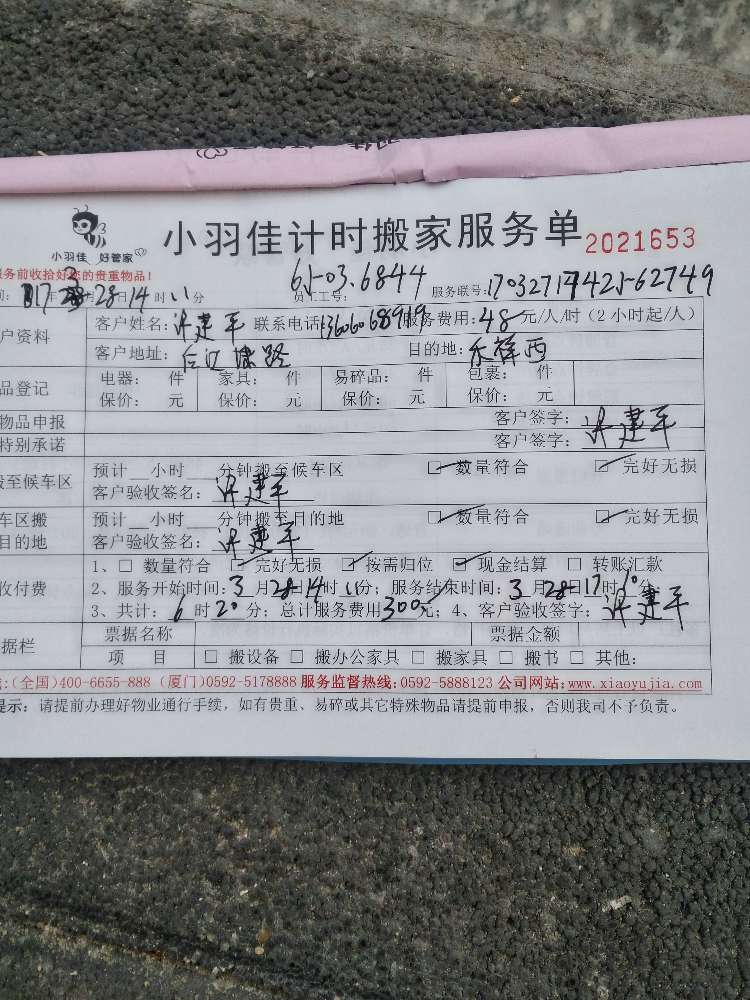 小羽佳 好管家
小羽佳计时搬家服务单 2021653
服务前收拾好您的贵重物品!
17年3月28日14时11分 员工工号: 服务联号:
户资料 客户姓名:许建平 联系电话: 服务费用:48元/人/时(2小时起/人)
客户地址: 目的地:
品登记 电器: 件 家具: 件 易碎品: 件 包裹: 件
保价: 元 保价: 元 保价: 元 保价: 元
物品申报 客户签字:许建平
特别承诺 客户签字:
搬至候车区 预计__小时__分钟搬至候车区 ☑数量符合 ☑完好无损
客户验收签名:许建平
车区搬 预计__小时__分钟搬至目的地 ☑数量符合 ☑完好无损
目的地 客户验收签名:许建平
收付费 1、□ 数量符合 ☑完好无损 ☑按需归位 ☑现金结算 □ 转账汇款
2、服务开始时间:3月28日14时11分;服务结束时间:3月28日17时10分
3、共计:6时20分;总计服务费用300元;4、客户验收签字:许建平
据栏 票据名称 票据金额
项 目 □ 搬设备 □ 搬办公家具 □ 搬家具 □ 搬书 □ 其他:
:(全国)400-6655-888 (厦门)0592-5178888 服务监督热线:0592-5888123 公司网站:www.xiaoyujia.com
提示:请提前办理好物业通行手续,如有贵重、易碎或其它特殊物品请提前申报,否则我司不予负责。